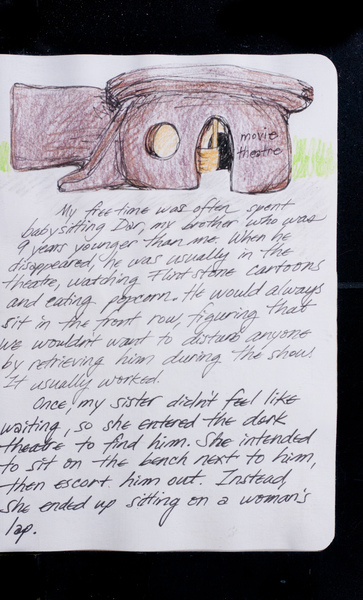 movie
theatre
My free time was often spent
babysitting Dan, my brother who was
9 years younger than me. When he
disappeared, he was usually in the
theatre, watching Flintstone cartoons
and eating popcorn. He would always
sit in the front row, figuring that
we wouldn't want to disturb anyone
by retrieving him during the show.
It usually worked.
Once, my sister didn't feel like
waiting, so she entered the dark
theatre to find him. She intended
to sit on the bench next to him,
then escort him out. Instead,
she ended up sitting on a woman's
lap.